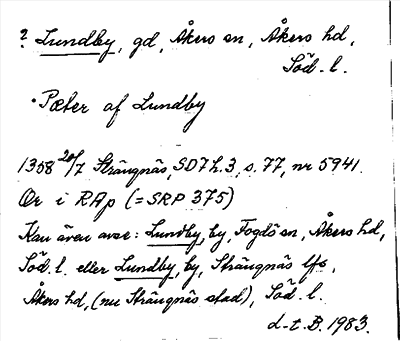 ? Lundby, gd, Åkers sn, Åkers hd,
Söd. l.
"Pæter af Lundby
1358 20/7 Strängnäs, SD7h.3, s. 77, nr 5941.
Or i RAp (=SRP 375)
Kan även avse: Lundby, by, Fogdö sn, Åkers hd,
Söd. l. eller Lundby, by, Strängnäs lfs,
Åkers hd, (nu Strängnäs stad), Söd. l.
d-t. B. 1983.